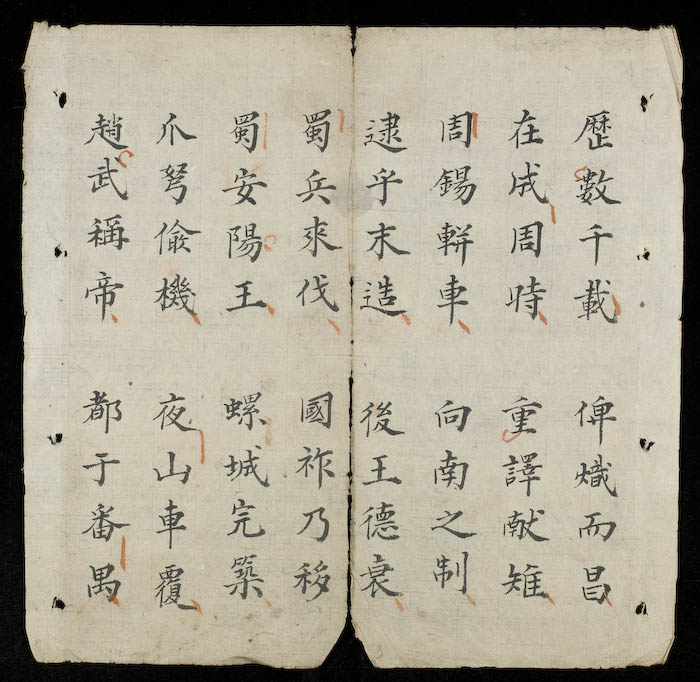 歷數千載 俾熾而昌
在成周時 重譯献雉
周錫軿車 向南之制
逮乎末造 後王德衰
蜀兵來伐 國祚乃移
蜀安陽王 螺城完築
爪弩偸機 夜山車覆
趙武稱帝 都于番禺
3